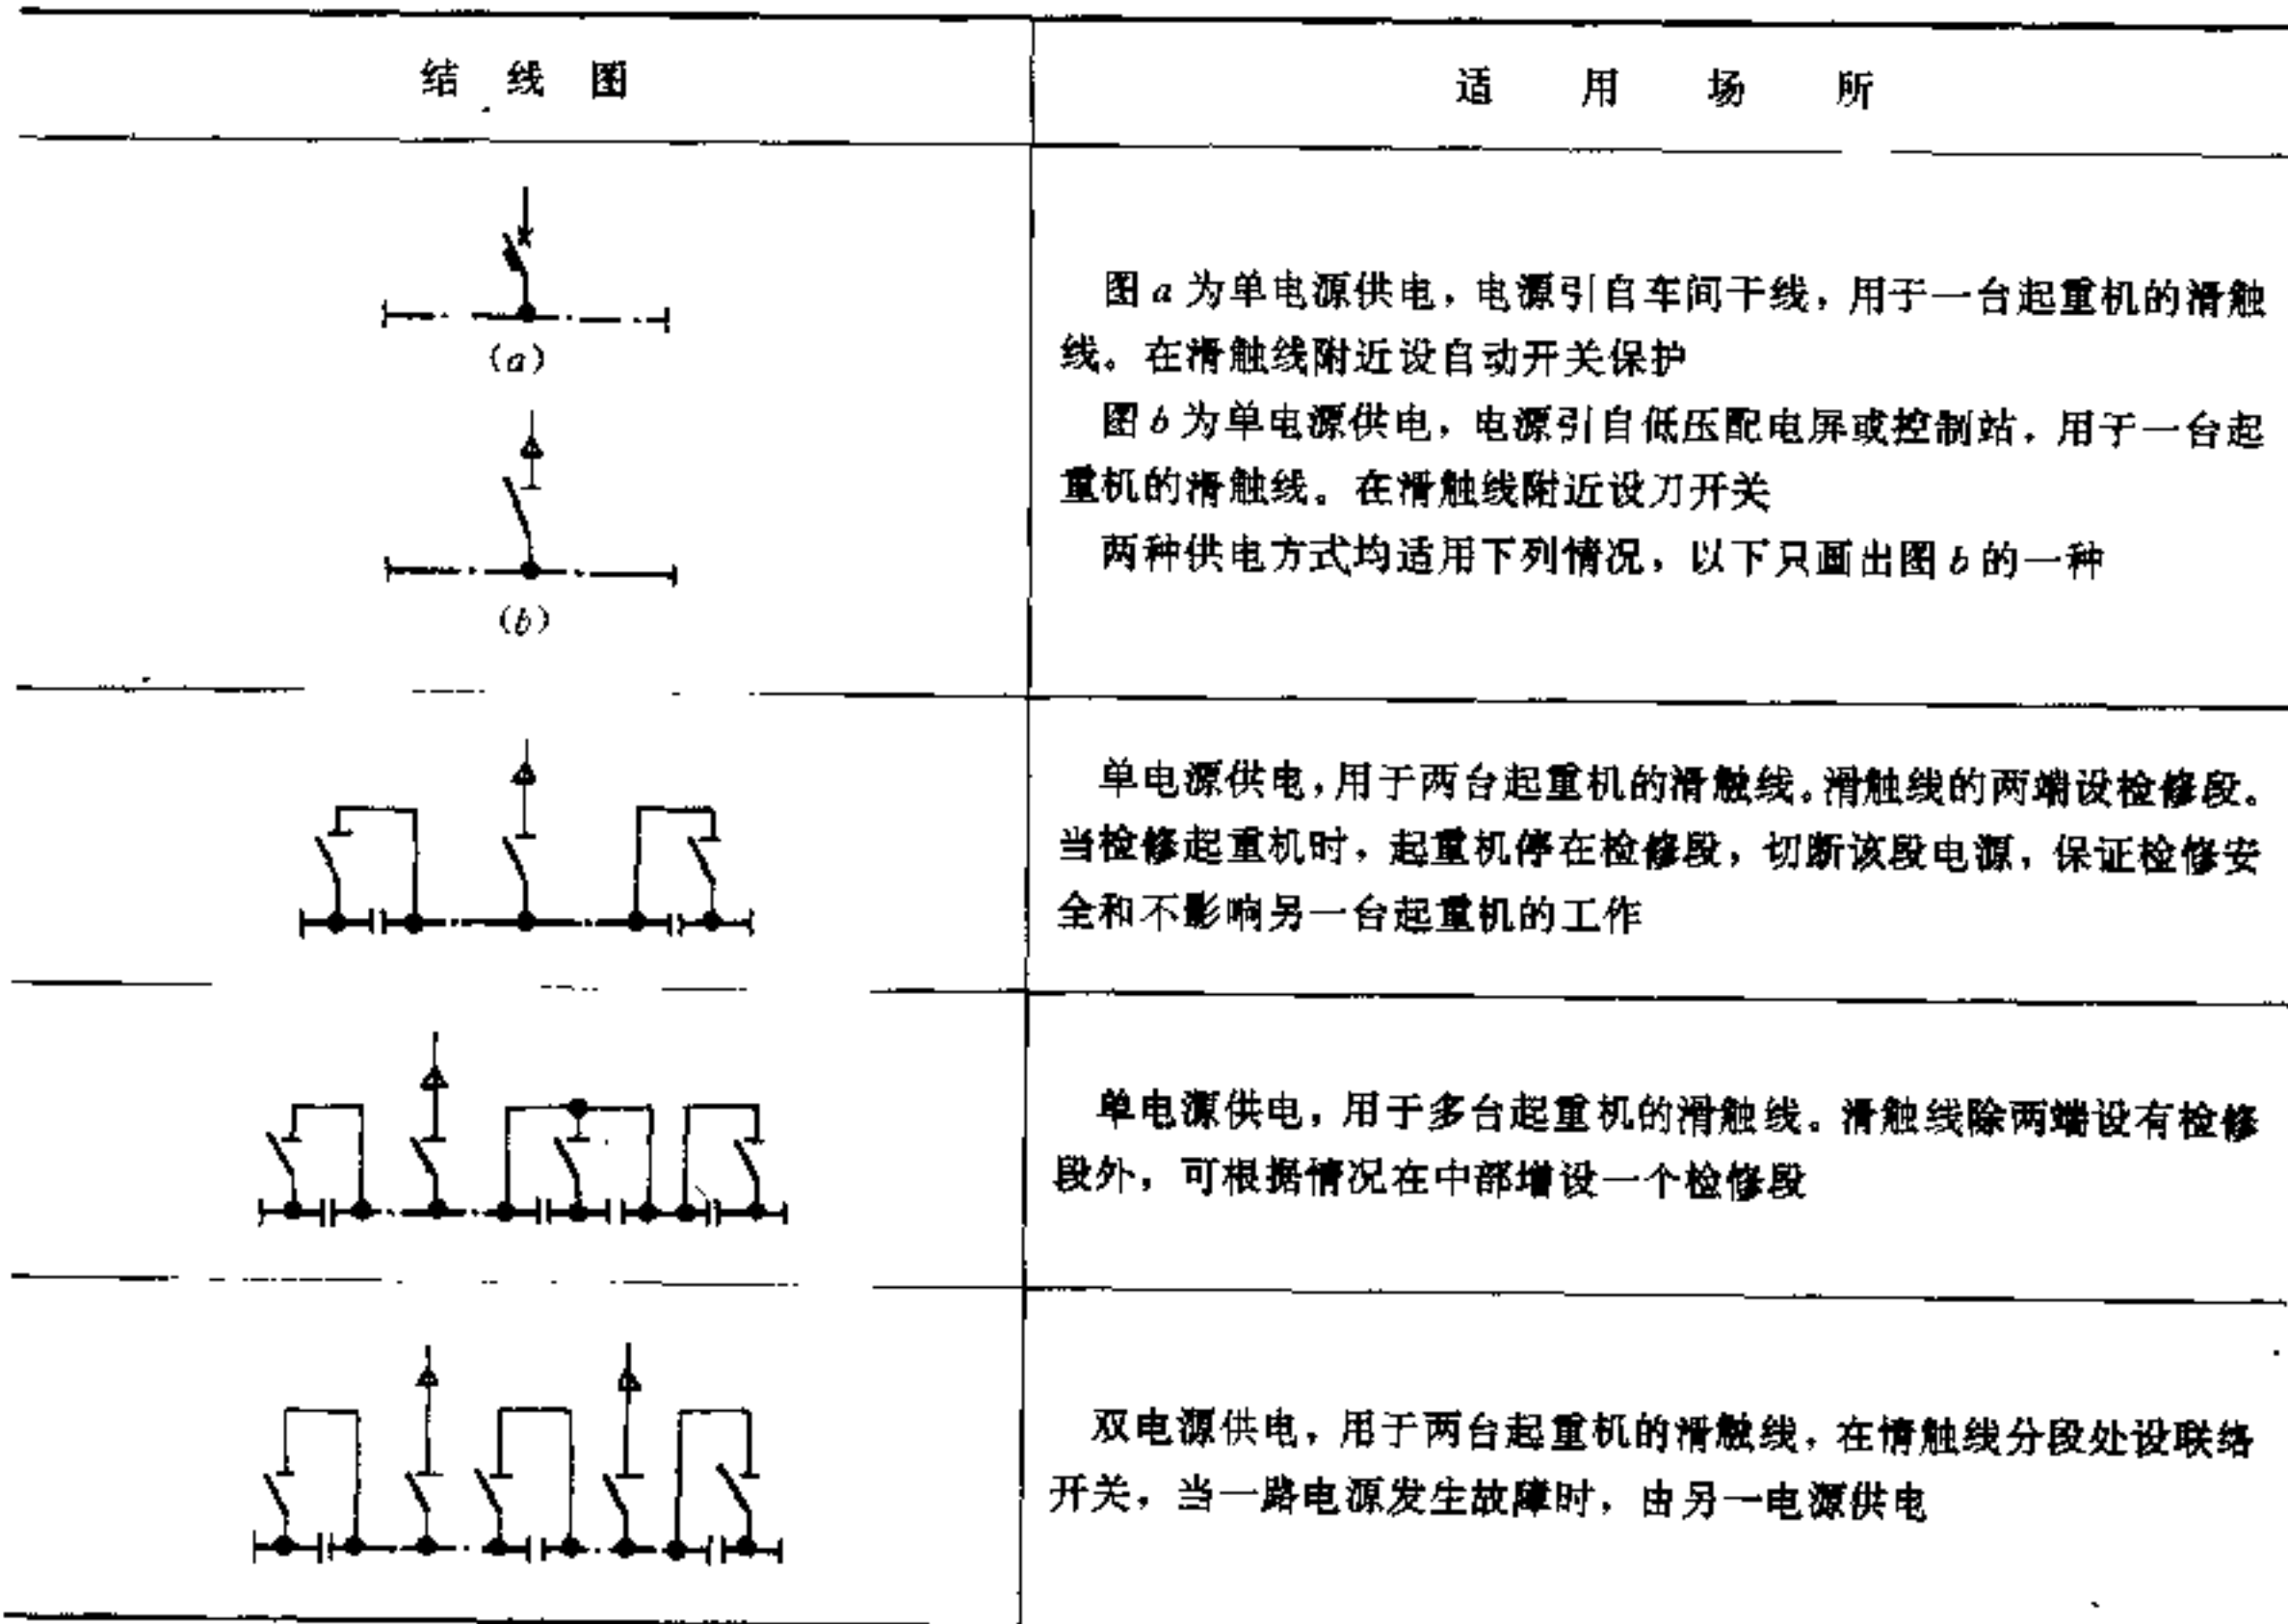 结 线 图
适 用 场 所
(a)
(b)
图 a 为单电源供电，电源引自车间干线，用于一台起重机的滑触
线。在滑触线附近设自动开关保护
图 b 为单电源供电，电源引自低压配电屏或控制站，用于一台起
重机的滑触线。在滑触线附近设刀开关
两种供电方式均适用下列情况，以下只画出图 b 的一种
单电源供电，用于两台起重机的滑触线。滑触线的两端设检修段。
当检修起重机时，起重机停在检修段，切断该段电源，保证检修安
全和不影响另一台起重机的工作
单电源供电，用于多台起重机的滑触线。滑触线除两端设有检修
段外，可根据情况在中部增设一个检修段
双电源供电，用于两台起重机的滑触线，在情触线分段处设联络
开关，当一路电源发生故障时，由另一电源供电